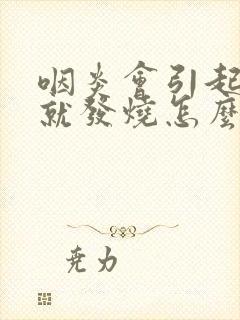 咽炎會引起
就發燒怎麼
尭力